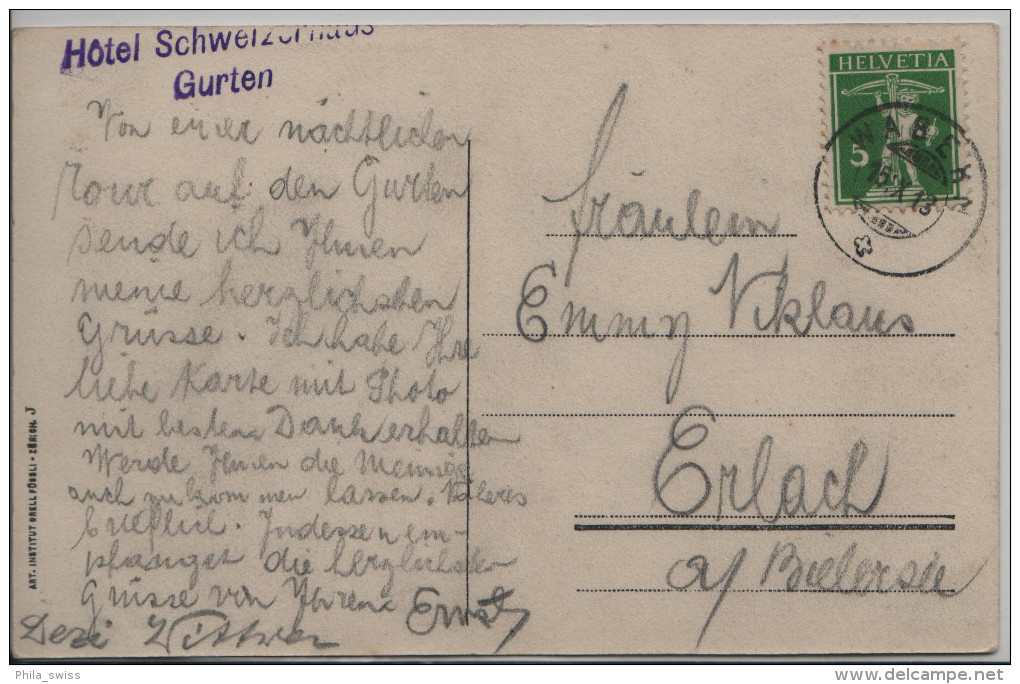 Hôtel Schweizerhaus
Gurten
Von einer nächtlichen
Tour auf den Gurten
sende ich Ihnen
meine herzlichsten
Grüsse. Ich habe Ihre
liebe Karte mit Photo
mit bestem Dank erhalten
Werde Ihnen die Meinige
auch zukommen lassen. Näheres
brieflich. Indessen em-
pfanget die herzlichsten
Grüsse von Ihrem Ernst
HELVETIA
5
WABERN
15.X.13
Fräulein
Emmy Niklaus
Erlach
a/ Bielersee
ART. INSTITUT ORELL FÜSSLI - ZÜRICH. J
Phila_swiss
delcampe.net